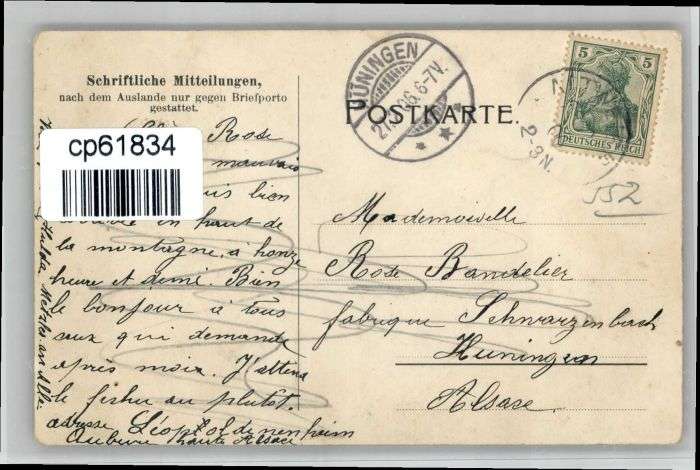 Schriftliche Mitteilungen,
nach dem Auslande nur gegen Briefporto
gestattet.
POSTKARTE.
HÜNINGEN
6-7V.
5 5
DEUTSCHES REICH
2-3N.
552
cp61834
Rose
mauvais
bien
en haut de
la montagne, à honze
heure et dimi. Bien
le bonjour à tous
seux qui demande
après moix. J'attens
le fisher au plutot.
adresse Léopold
haute Alsace
Mademoiselle
Rose Bandelier
fabrique Schwarzenbach
Huningen
Alsase.